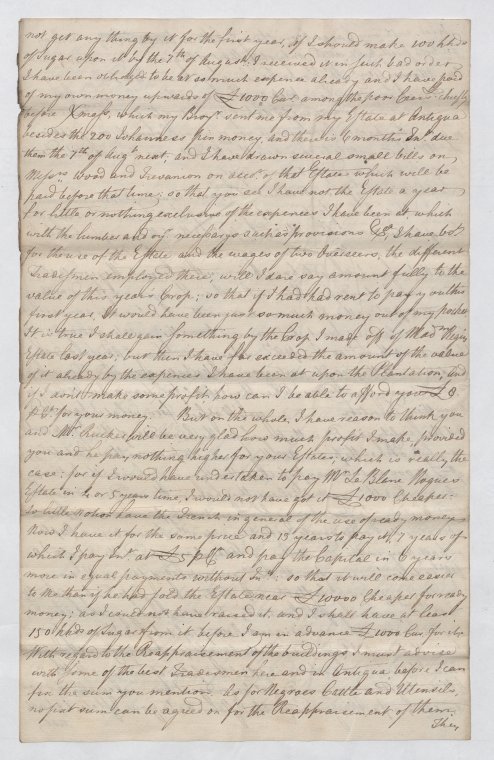 not get any thing by it for the first year, if I should make 100 hhds
of Sugar upon it by the 7th of August. I received it in such bad order
I have been oblidged to be at so much expence already and I have paid
of my own money upwards of £1000 Cur. among the poor Cred.rs chiefly
before Xmass, which my Bror. sent me from my Estate at Antigua
besides the 200 Johannes pin money and there is 6 months Int. due
them the 7th of Augt next, and I have drawn several small bills on
Messrs Wood and Trevanion on acct. of that Estate which will be
paid before that time; so that you see I have not the Estate a year
for little or nothing exclusive of the expences I have been at, which
with the lumber and other necessarys such as provisions &c. I have bot.
for the use of the Estate and the wages of two Overseers, the different
Tradesmen employed there, will I dare say amount fully to the
value of this years Crop; so that if I had had rent to pay you this
first year, it would have been just so much money out of my pocket
It is true I shall gain something by the Crop I made off of Madm
Estate last year; but then I have far exceeded the amount of the value
of it already by the expences I have been at upon the Plantation, and
if I dont make some profit, how can I be able to afford you £8
P Ct. for your money. But on the whole, I have reason to think you
and Mr. Rucker will be very glad how much profit I make, provided
you and he pay nothing higher for your Estates, which is really the
case: for if I would have undertaken to pay Mr Le Blanc Nogues
Estate in 4 or 5 years time, I would not have got it £1000 Cheaper:
so little notion have the french in general of the use of ready money
Now I have it for the same price and 13 years to pay it, 7 years of
which I pay Int. at £5 P Ct. and pay the Capital in 6 years
more in equal payments without Int.: so that it will come easier
to me than if he had sold the Estate near £10000 Cheaper for ready
money; as I could not have raised it, and I shall have at least
150 hhds of Sugar from it before I am in advance £1000 Cur. for it.
With regard to the Reappraisement of the buildings I must advise
with some of the best Tradesmen here and in Antigua before I can
fix the sum you mention. As for Negroes Cattle and Utensils,
no fixt sum can be agreed on for the Reappraisement of them.
They